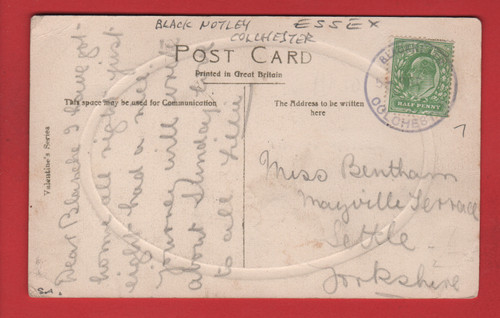 BLACK NOTLEY ESSEX
COLCHESTER
POST CARD
Printed in Great Britain
This space may be used for Communication
The Address to be written
here
Valentine's Series
HALF PENNY
COLCHES
Dear Blanche I have got
home all right just
eight had a nice
Journey will write
about Sunday
to all Lillie
Miss Bentham
Mayville Terrace
Settle
Yorkshire